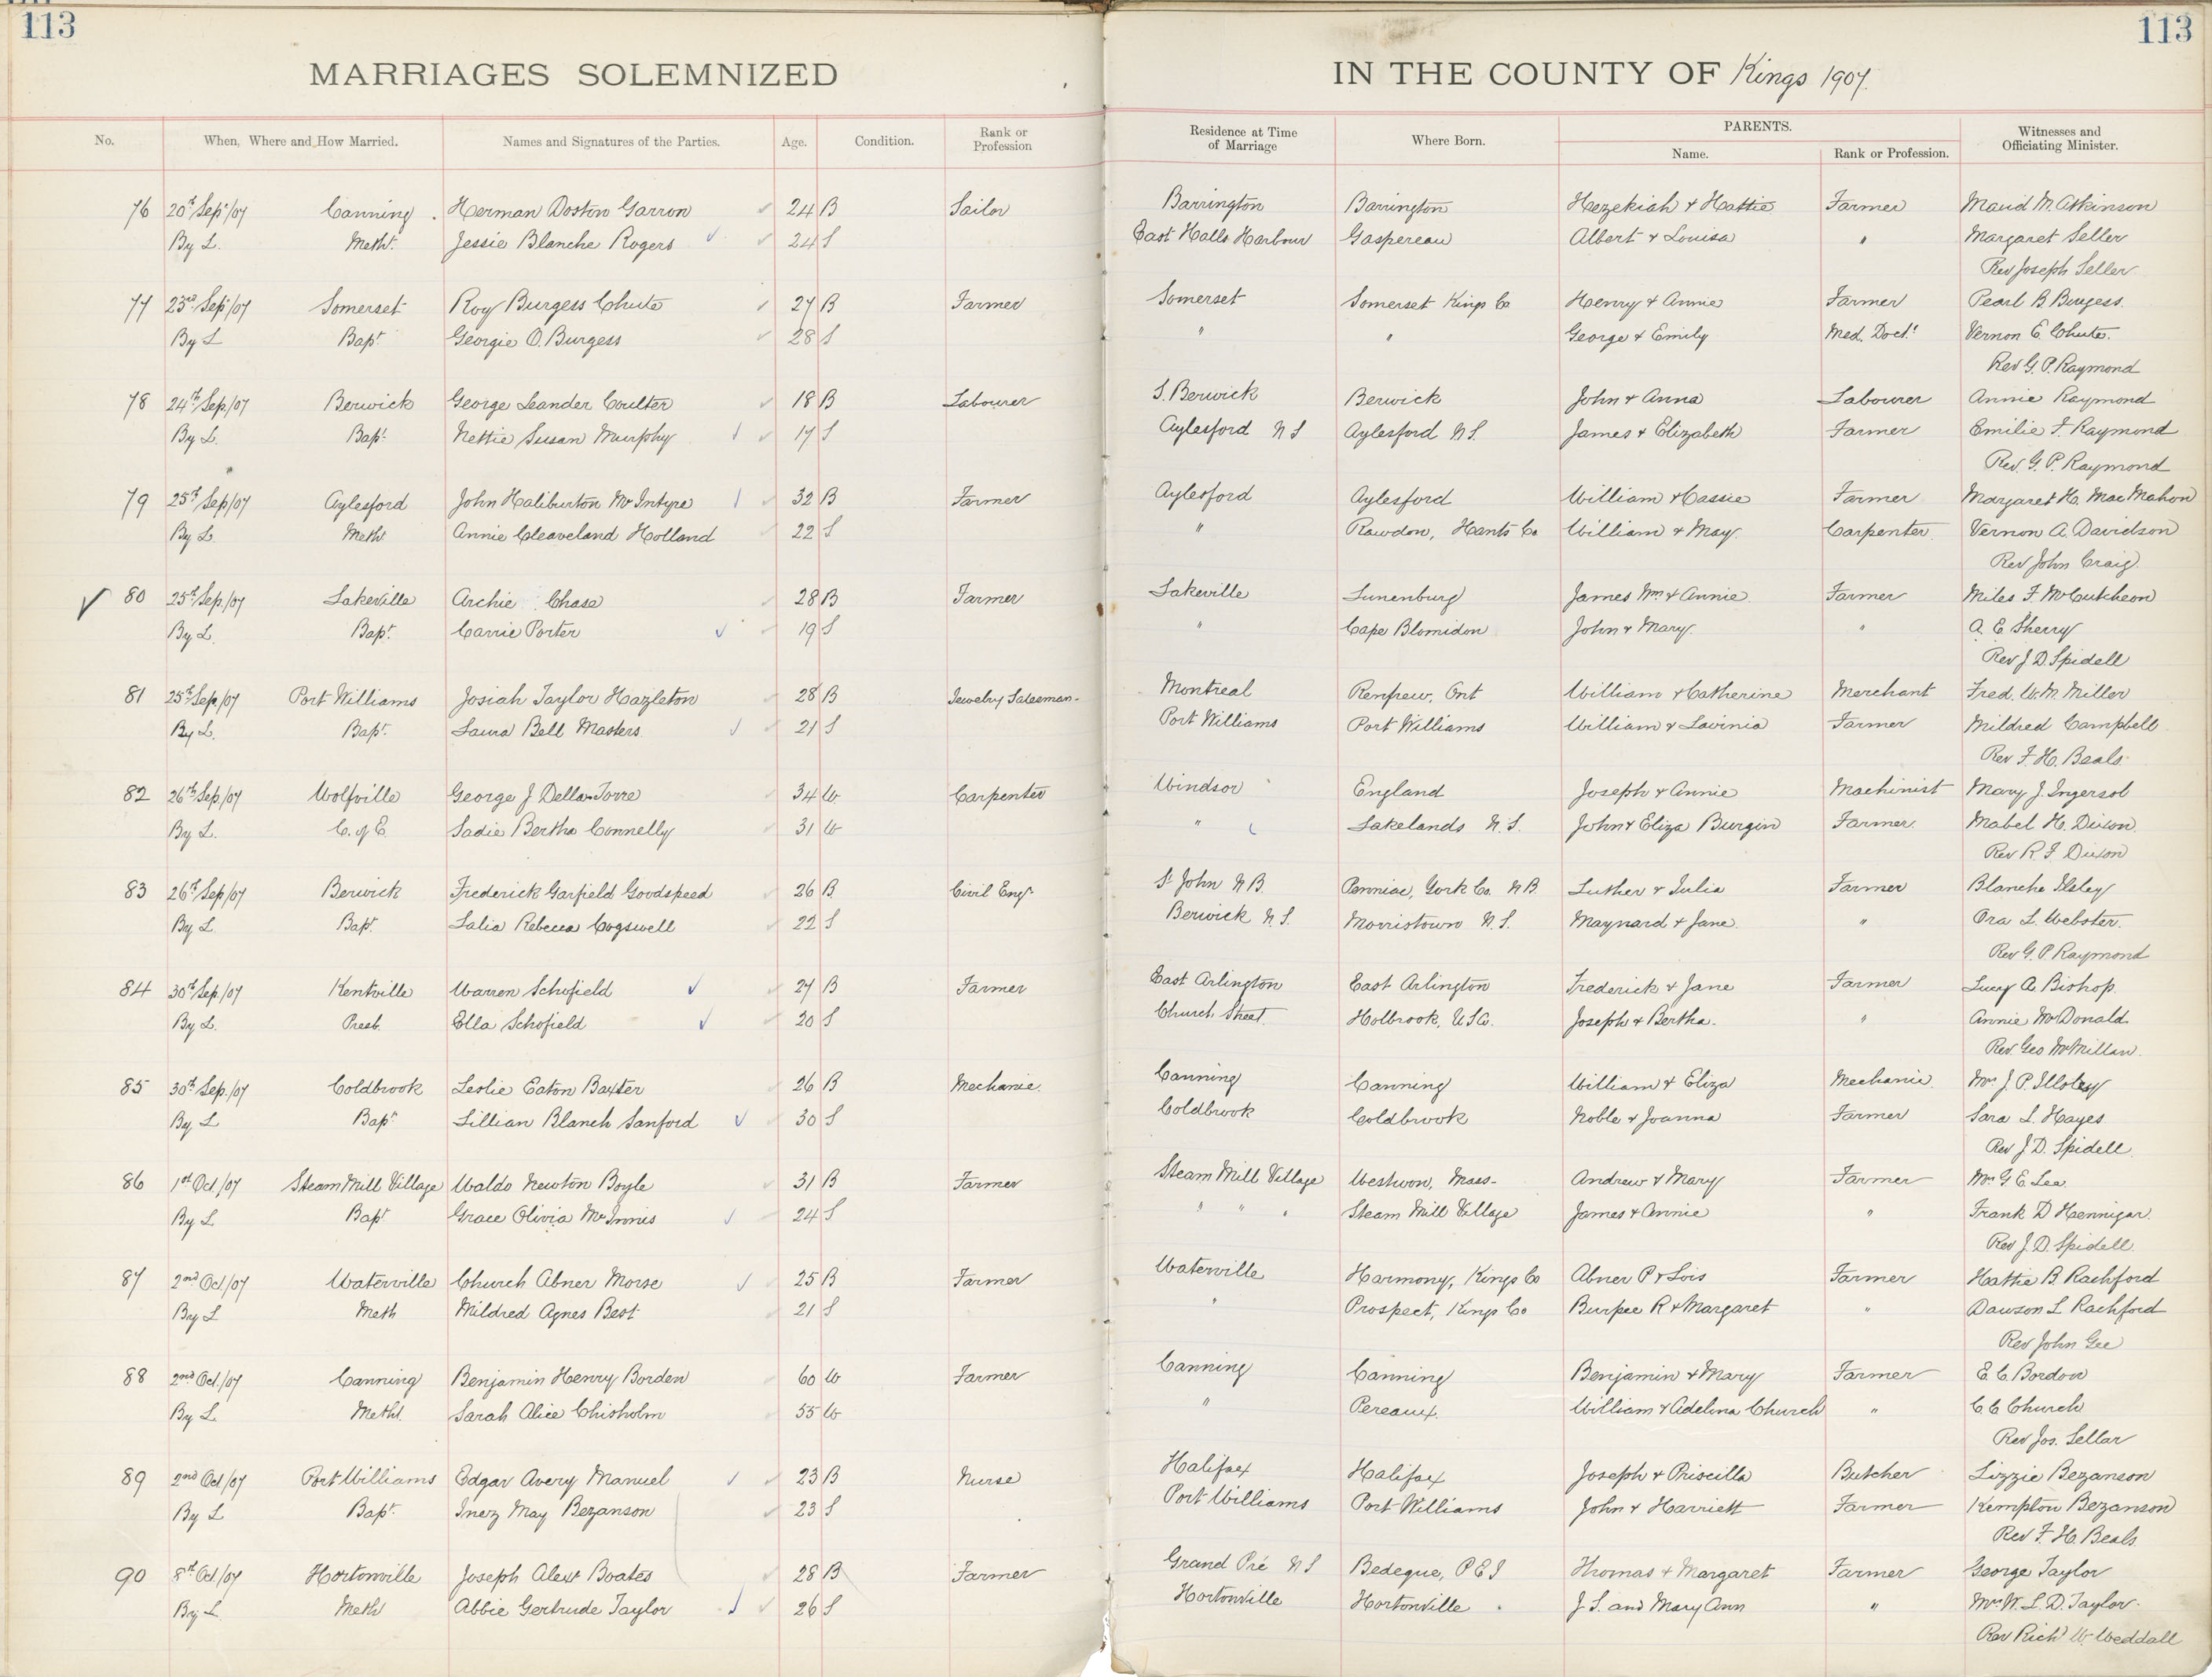 113 113
MARRIAGES SOLEMNIZED IN THE COUNTY OF Kings 1907.
No. When, Where and How Married. Names and Signatures of the Parties. Age. Condition. Rank or Profession Residence at Time of Marriage Where Born. PARENTS. Name. Rank or Profession. Witnesses and Officiating Minister.
76 20th Sept/07 Canning Herman Doston Garron 24 B Sailor Barrington Barrington Hezekiah & Hattie Farmer Maud M. Atkinson
By L. Metht. Jessie Blanche Rogers 24 S East Halls Harbour Gaspereau Albert & Louisa " Margaret Seller
Rev Joseph Seller
77 23rd Sept/07 Somerset Roy Burgess Chute 27 B Farmer Somerset Somerset Kings Co Henry & Annie Farmer Pearl B. Burgess.
By L Bapt. Georgie O. Burgess 28 S " " George & Emily Med. Doct. Vernon E. Chute.
Rev G. P. Raymond
78 24th Sep./07 Berwick George Leander Coulter 18 B Labourer S. Berwick Berwick John & Anna Labourer Annie Raymond
By L. Bapt. Nettie Susan Murphy 17 S Aylesford N S Aylesford N S. James & Elizabeth Farmer Emilie F. Raymond
Rev. G. P. Raymond
79 25th Sep/07 Aylesford John Haliburton McIntyre 32 B Farmer Aylesford Aylesford William & Cassie Farmer Margaret H. MacMahon
By L. Meth Annie Cleaveland Holland 22 S " Rawdon, Hants Co William & May Carpenter Vernon A. Davidson
Rev John Craig
80 25th Sep./07 Lakeville Archie Chase 28 B Farmer Lakeville Lunenburg James Wm & Annie Farmer Miles F McCutcheon
By L. Bapt. Carrie Porter 19 S " Cape Blomidon John & Mary " A. E Sherry
Rev J. D. Spidell
81 25th Sep/07 Port Williams Josiah Taylor Hazleton 28 B Jewelry Salesman. Montreal Renfrew, Ont William & Catherine Merchant Fred. W. M. Miller
By L. Bapt. Laura Bell Masters 21 S Port Williams Port Williams William & Lavinia Farmer Mildred Campbell
Rev F. H. Beals
82 26th Sep./07 Wolfville George J Della-Torre 34 W Carpenter Windsor England Joseph & Annie Machinist Mary J. Ingersol
By L. C. of E. Sadie Bertha Connelly 31 W " Lakelands N. S. John & Eliza Burgin Farmer Mabel H. Dixon
Rev R. F. Dixon
83 26th Sep/07 Berwick Frederick Garfield Goodspeed 26 B Civil Engr St John N B. Penniac, York Co. N B. Luther & Julia Farmer Blanche Ilsley
By L. Bapt. Lalia Rebecca Cogswell 22 S Berwick N. S. Morristown N. S. Maynard & Jane " Ora L. Webster.
Rev G. P Raymond
84 30th Sep./07 Kentville Warren Schofield 27 B Farmer East Arlington East Arlington Frederick & Jane Farmer Lucy A. Bishop
By L. Presb. Ella Schofield 20 S Church Street Holbrook, U S A. Joseph & Bertha. " Annie McDonald
Rev. Geo McMillan
85 30th Sep./07 Coldbrook Leslie Eaton Baxter 26 B Mechanic Canning Canning William & Eliza Mechanic Mrs J. P. Illsley
By L Bapt. Lillian Blanch Sanford 30 S Coldbrook Coldbrook Noble & Joanna Farmer Sara L. Hayes
Rev J. D. Spidell
86 1st Oct/07 Steam Mill Village Waldo Newton Boyle 31 B Farmer Steam Mill Village Westwon, Mass. Andrew & Mary Farmer Mrs G. E Lee
By L Bapt. Grace Olivia McInnis 24 S " " " Steam Mill Village James & Annie " Frank D Hennigar
Rev J. D. Spidell
87 2nd Oct/07 Waterville Church Abner Morse 25 B Farmer Waterville Harmony, Kings Co Abner P & Lois Farmer Hattie B. Rachford
By L Meth Mildred Agnes Best 21 S " Prospect, Kings Co Burpee R & Margaret " Dawson L Rachford
Rev John Gee
88 2nd Oct./07 Canning Benjamin Henry Borden 60 W Farmer Canning Canning Benjamin & Mary Farmer E. C. Bordon
By L Metht. Sarah Alice Chisholm 55 W " Pereaux William & Adelina Church " C. C Church
Rev Jos. Sellar
89 2nd Oct/07 Port Williams Edgar Avery Manuel 23 B Nurse Halifax Halifax Joseph & Priscilla Butcher Lizzie Bezanson
By L Bapt. Inez May Bezanson 23 S Port Williams Port Williams John & Harriett Farmer Kempton Bezanson
Rev F. H. Beals
90 8th Oct/07 Hortonville Joseph Alex Boates 28 B Farmer Grand Pré N S Bedeque, P E I Thomas & Margaret Farmer George Taylor
By L. Meth Abbie Gertrude Taylor 26 S Hortonville Hortonville J. S. and Mary Ann " Mrs W. L. D. Taylor
Rev Richd W. Weddall